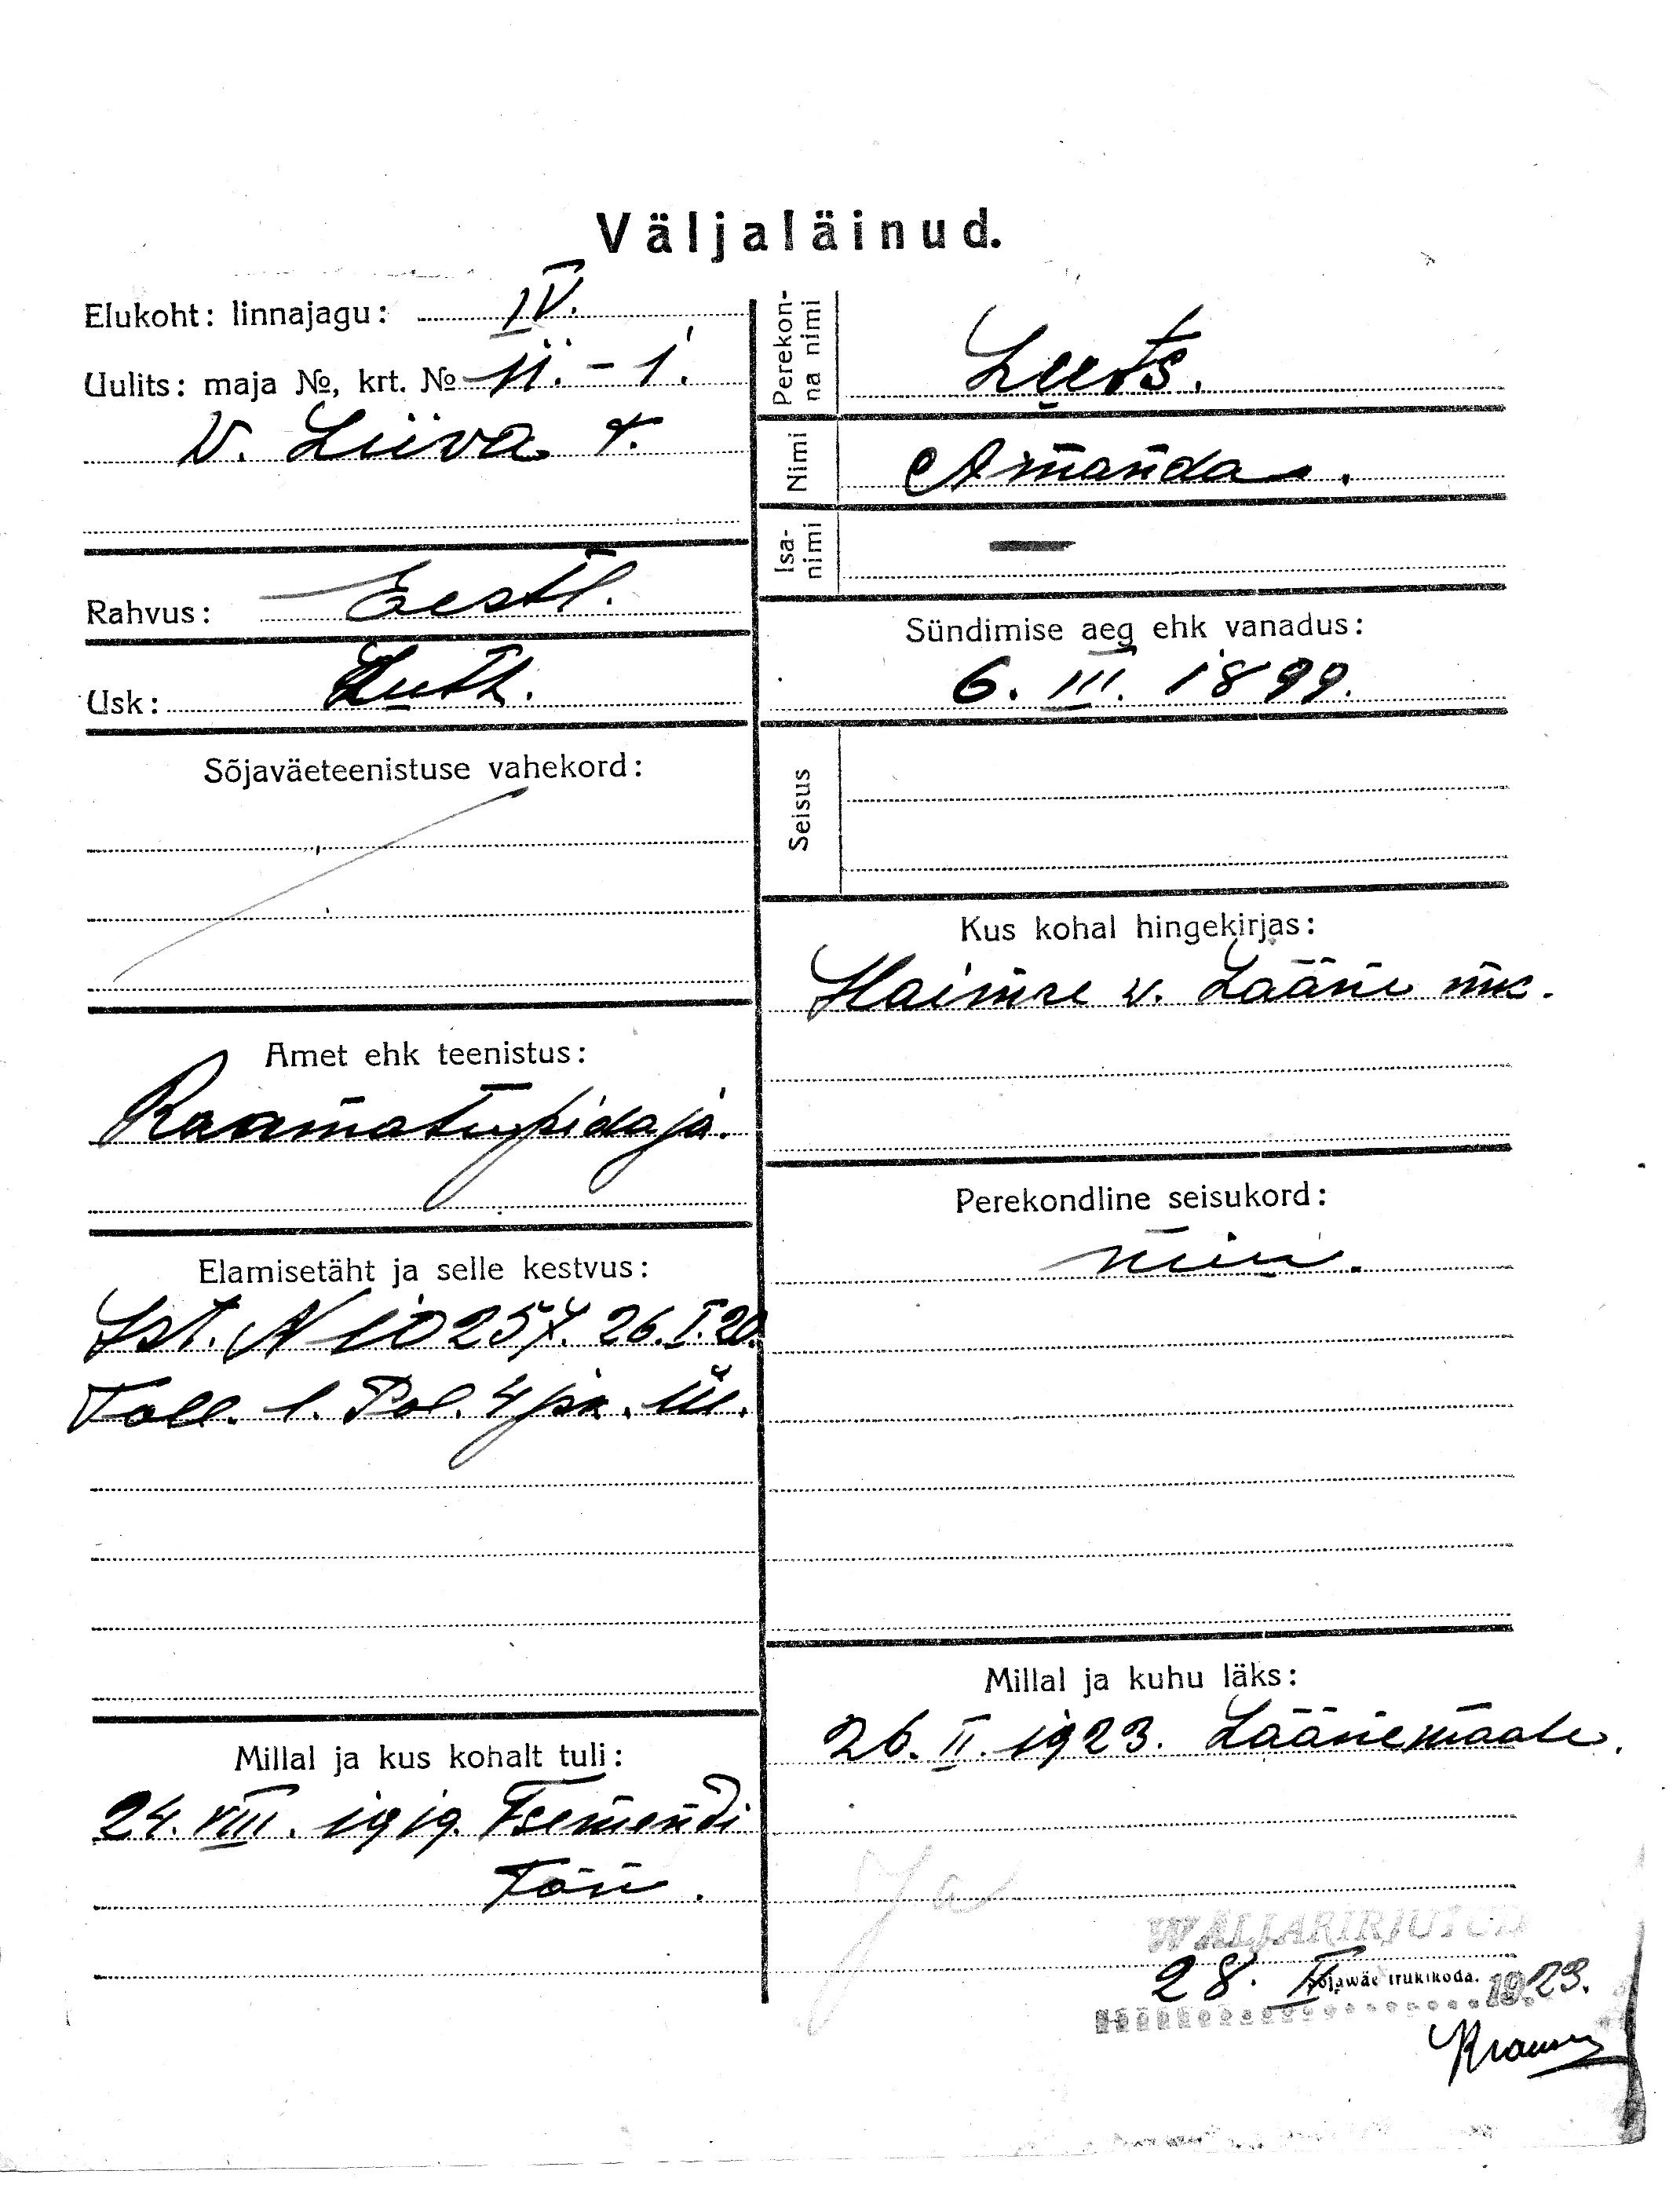 Väljaläinud.
Elukoht: linnajagu: IV.
Uulits: maja №, krt. № 11. - 1.
V. Liiva t.
Rahvus: Eestl.
Usk: Luth.
Sõjaväeteenistuse vahekord:
Amet ehk teenistus:
Raamatupidaja.
Elamisetäht ja selle kestvus:
Ist. N 10257. 26.I.20.
Tall. l. Pol. 4 jsk. ül.
Millal ja kus kohalt tuli:
24. VIII. 1919. Tsemendi
Perekon-
na nimi
Luts.
Nimi
Amanda.
Isa-
nimi
—
Sündimise aeg ehk vanadus:
6. III. 1899.
Seisus
Kus kohal hingekirjas:
Haimre v. Lääne mk.
Perekondline seisukord:
Millal ja kuhu läks:
26. II. 1923. Läänemaale.
Ja
WÄLJAKIRJUTUD
28. II 1923.
Sõjawäe trukikoda.